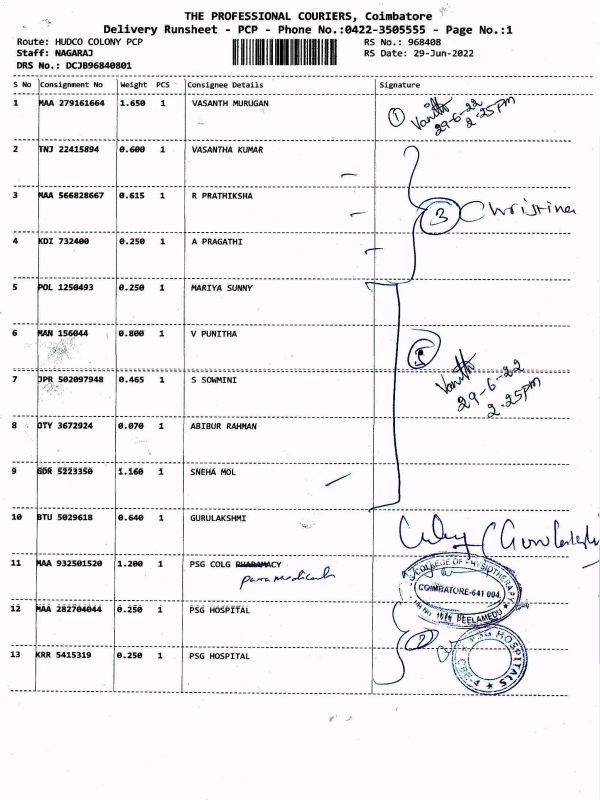 THE PROFESSIONAL COURIERS, Coimbatore
Delivery Runsheet - PCP - Phone No.:0422-3505555 - Page No.:1
Route: HUDCO COLONY PCP
Staff: NAGARAJ
DRS No.: DCJB96840801
RS No.: 968408
RS Date: 29-Jun-2022
S No Consignment No Weight PCS Consignee Details Signature
1 MAA 279161664 1.650 1 VASANTH MURUGAN
1 Vanitha
29-6-22
2.25pm
2 TNJ 22415894 0.600 1 VASANTHA KUMAR
3 MAA 566828667 0.615 1 R PRATHIKSHA
3 Christina
4 KDI 732400 0.250 1 A PRAGATHI
5 POL 1250493 0.250 1 MARIYA SUNNY
6 MAN 156044 0.800 1 V PUNITHA
7 JPR 502097948 0.465 1 S SOWMINI
Vanitha
29-6-22
2.25pm
8 OTY 3672924 0.070 1 ABIBUR RAHMAN
9 GDR 5223350 1.160 1 SNEHA MOL
10 BTU 5029618 0.640 1 GURULAKSHMI
11 MAA 932501520 1.200 1 PSG COLG PHARAMACY
paramedicals
COLLEGE OF PHYSIOTHERAPY
COIMBATORE-641 004.
PEELAMEDU
12 MAA 282704044 0.250 1 PSG HOSPITAL
2
13 KRR 5415319 0.250 1 PSG HOSPITAL
PSG HOSPITALS
CBE-4